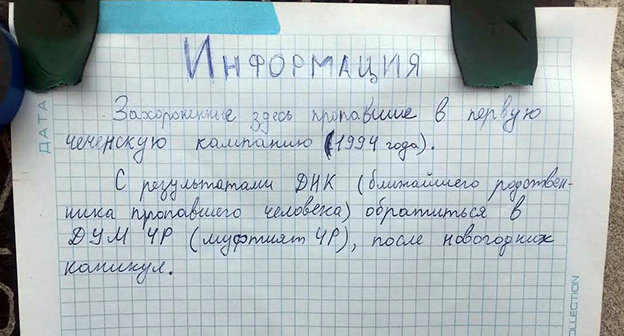 ИНФОРМАЦИЯ
Захороненные здесь пропавшие в первую
чеченскую кампанию (1994 года).
С результатами ДНК (ближайшего родствен-
ника пропавшего человека) обратиться в
ДУМ ЧР (муфтият ЧР), после новогодних
каникул.
ДАТА
COLLECTION